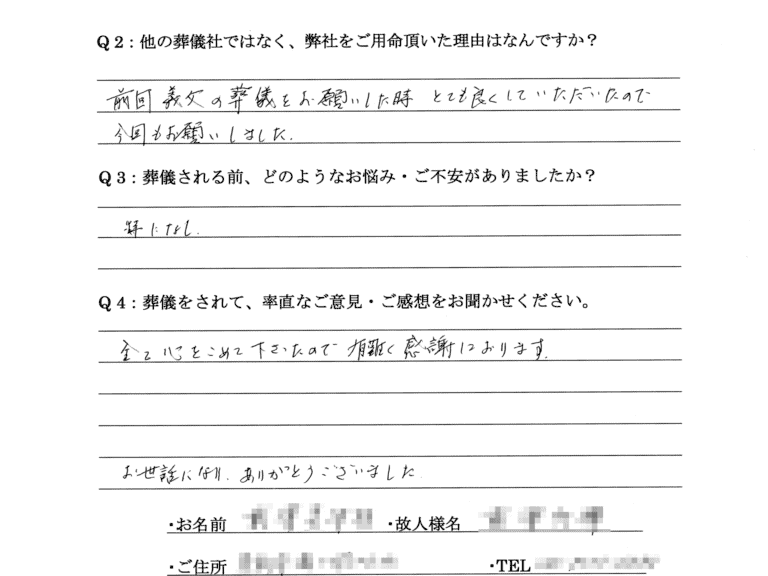 Q2：他の葬儀社ではなく、弊社をご用命頂いた理由はなんですか？
前回義父の葬儀をお願いした時 とても良くしていただいたので
今回もお願いしました.
Q3：葬儀される前、どのようなお悩み・ご不安がありましたか？
特になし.
Q4：葬儀をされて、率直なご意見・ご感想をお聞かせください。
全て心をこめて下さったので 有難く感謝しております.
お世話になり、ありがとうございました
・お名前 ・故人様名
・ご住所 ・TEL